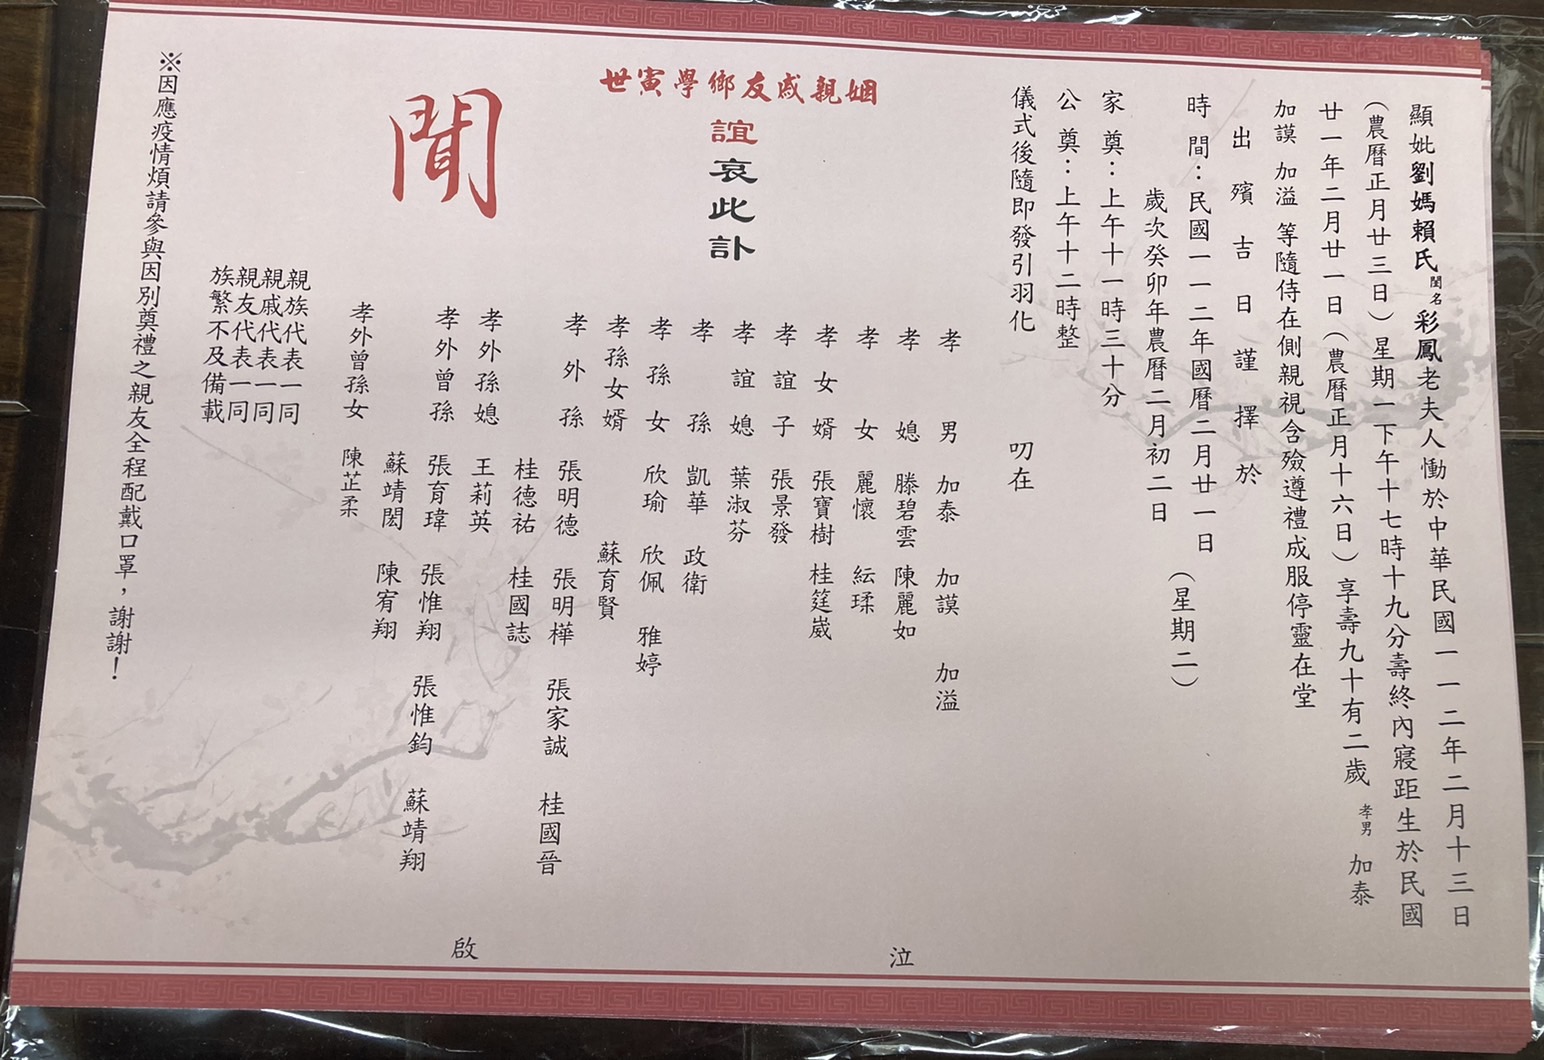 顯妣劉媽賴氏閨名彩鳳老夫人慟於中華民國一一二年二月十三日
（農曆正月廿三日）星期一下午十七時十九分壽終內寢距生於民國
廿一年二月廿一日（農曆正月十六日）享壽九十有二歲 孝男 加泰
加謨 加溢 等隨侍在側親視含殮遵禮成服停靈在堂
出殯吉日謹擇於
時間：民國一一二年國曆二月廿一日（星期二）
歲次癸卯年農曆二月初二日
家奠：上午十一時三十分
公奠：上午十二時整
儀式後隨即發引羽化 叨在
姻親戚友鄉學寅世
誼哀此訃
聞
孝男 加泰 加謨 加溢
孝媳 滕碧雲 陳麗如 泣
孝女 麗懷 紜瑈
孝女婿 張寶樹 桂筳崴
孝誼子 張景發
孝誼媳 葉淑芬
孝孫 凱華 政衛
孝孫女 欣瑜 欣佩 雅婷
孝孫女婿 蘇育賢
孝外孫 張明德 張明樺 張家誠 桂國晉
桂德祐 桂國誌
孝外孫媳 王莉英 啟
孝外曾孫 張育瑋 張惟翔 張惟鈞 蘇靖翔
蘇靖閎 陳宥翔
孝外曾孫女 陳芷柔
親族代表一同
親戚代表一同
親友代表一同
族繁不及備載
※因應疫情煩請參與因別奠禮之親友全程配戴口罩，謝謝！